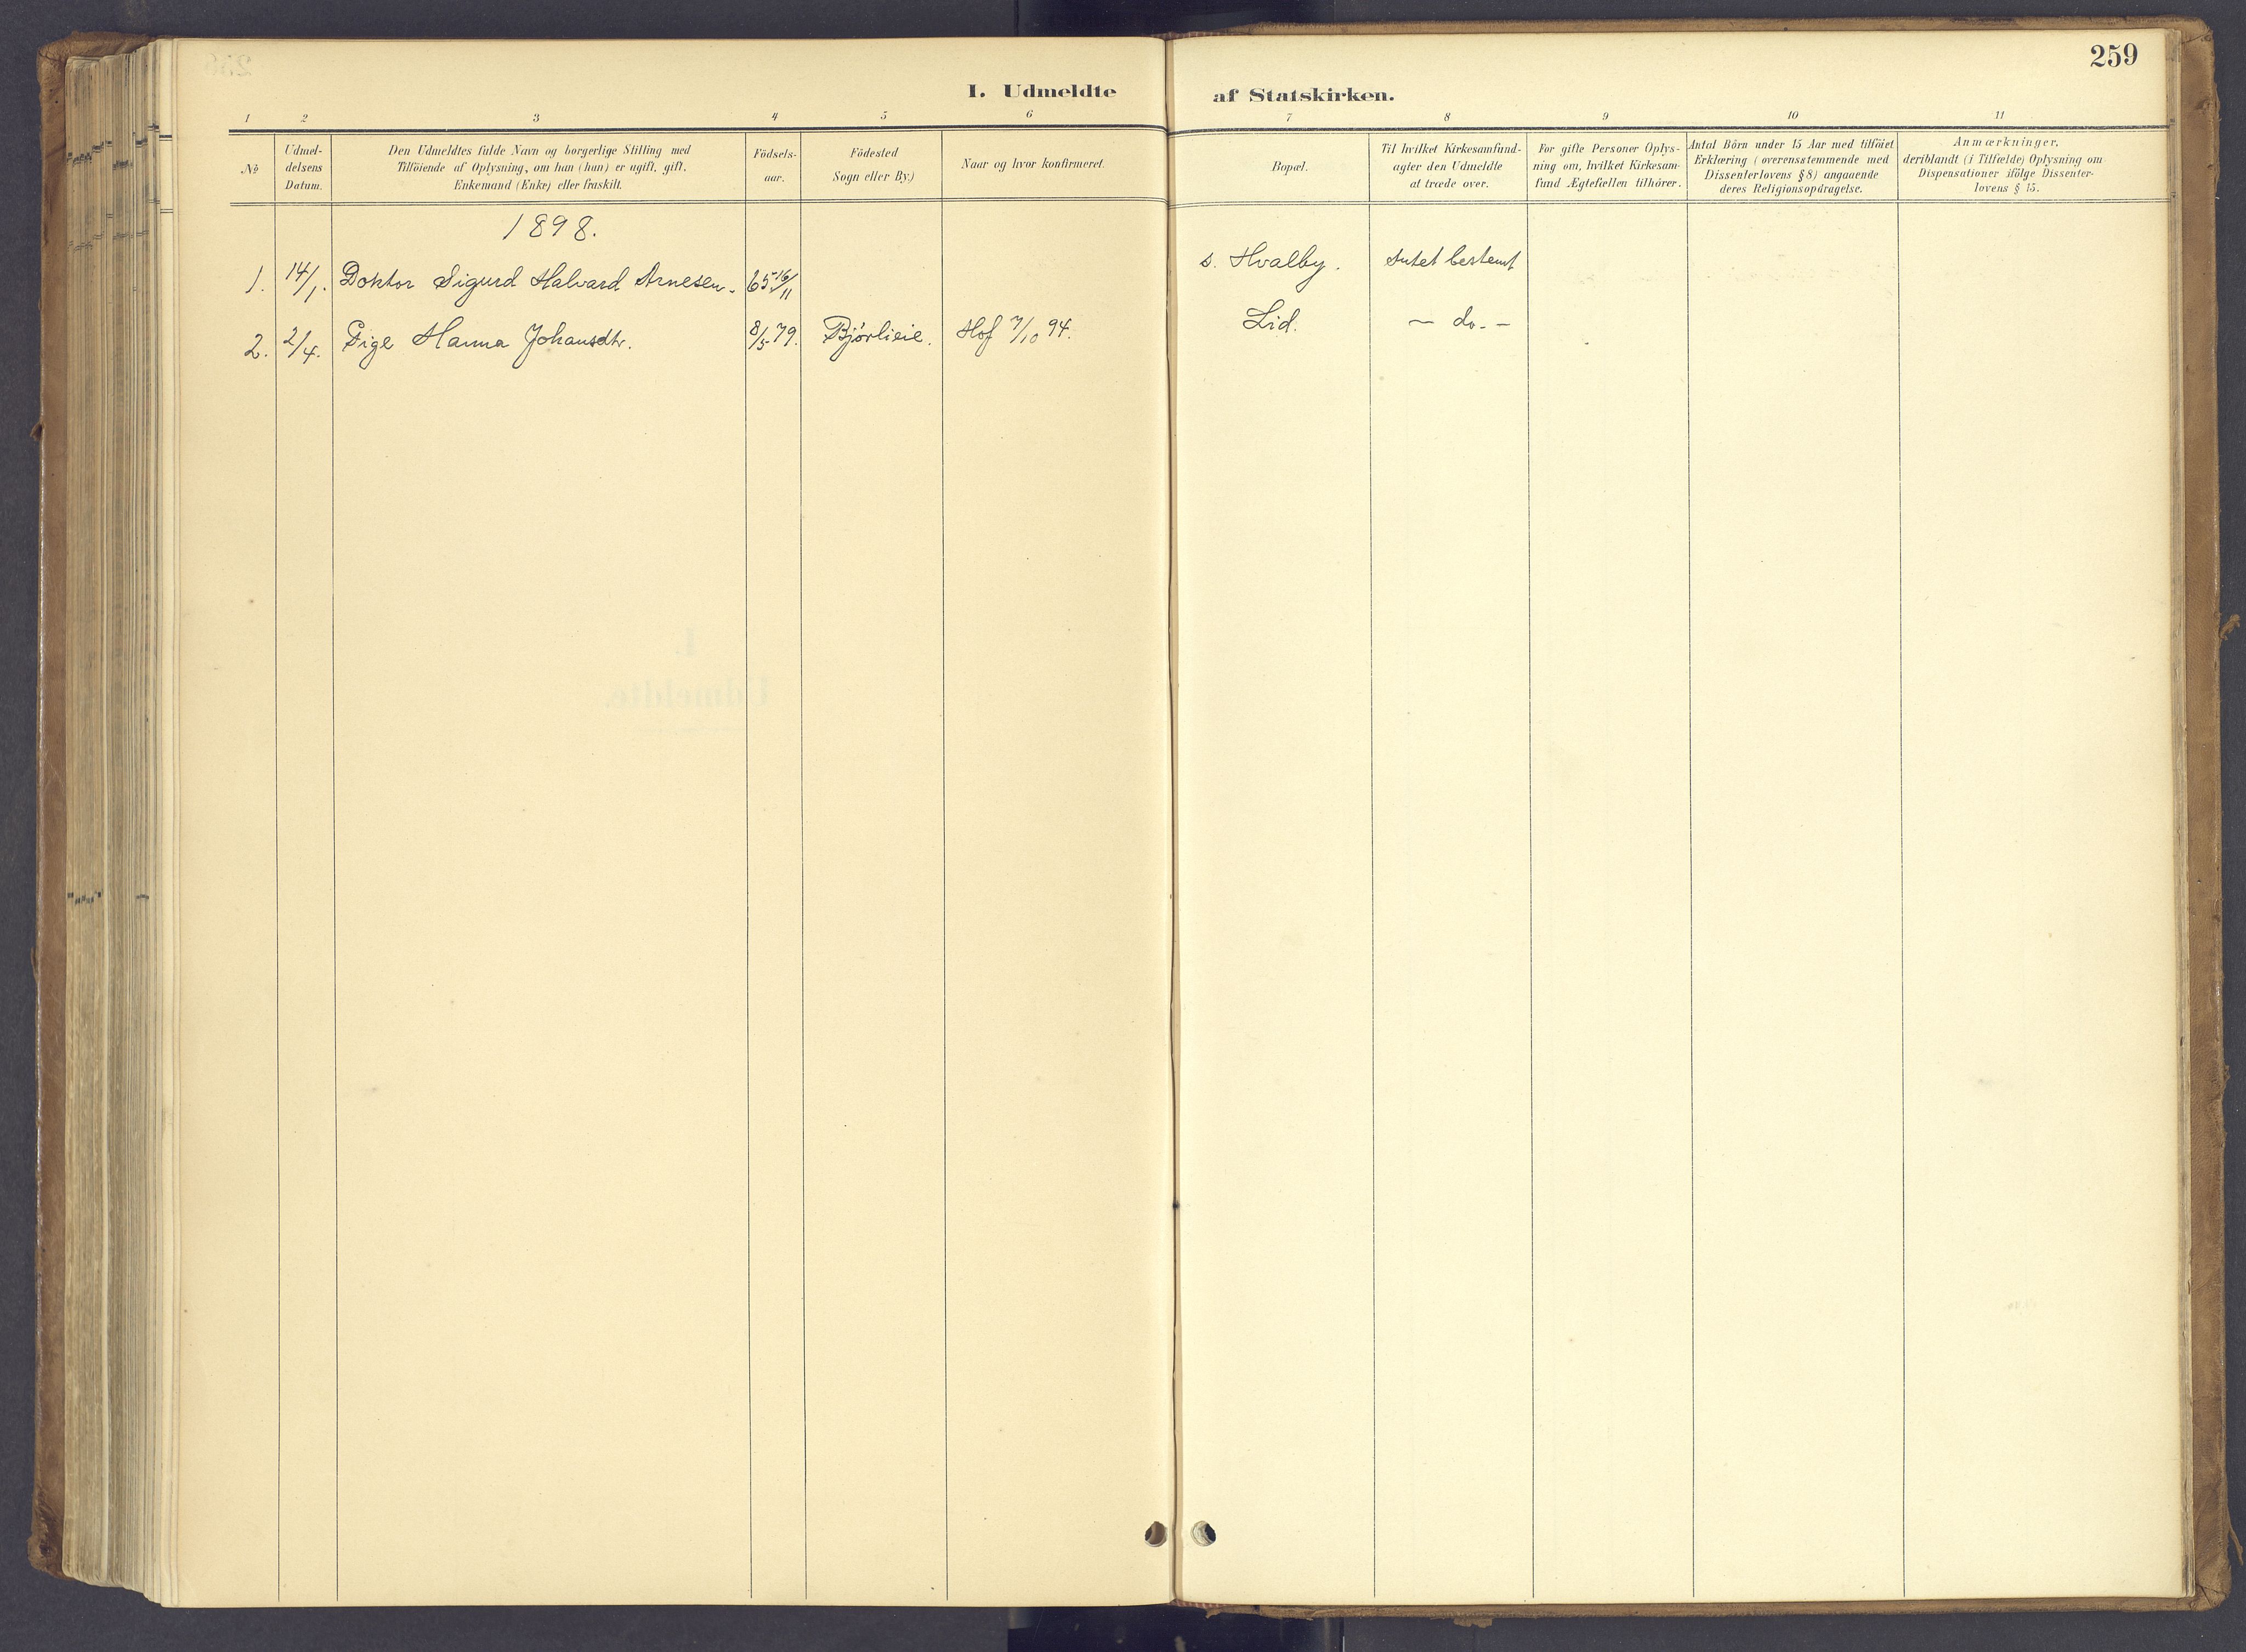 259
I. Udmeldte af Statskirken.
1 2 3 4 5 6 7 8 9 10 11
№
Udmel-
delsens
Datum.
Den Udmeldtes fulde Navn og borgerlige Stilling med
Tilföiende af Oplysning, om han (hun) er ugift, gift,
Enkemand (Enke) eller fraskilt.
Födsels-
aar.
Födested
Sogn eller By.)
Naar og hvor konfirmeret.
Bopæl.
Til hvilket Kirkesamfund-
agter den Udmeldte
at træde over.
For gifte Personer Oplys-
ning om, hvilket Kirkesam-
fund Ægtefællen tilhörer.
Antal Börn under 15 Aar med tilföiet
Erklæring (overensstemmende med
Dissenterlovens § 8) angaaende
deres Religionsopdragelse.
Anmærkninger.
deriblandt (i Tilfælde) Oplysning om
Dispensationer ifölge Dissenter-
lovens § 15.
1898.
1. 14/1. Doktor Sigurd Halvard Arnesen. 65 16/11 s. Hvalby. Intet bestemt
2. 2/4. Pige Hanna Johansdtr. 8/5 79. Bjørlieie. Hof 7/10 94. Lid. — do. —